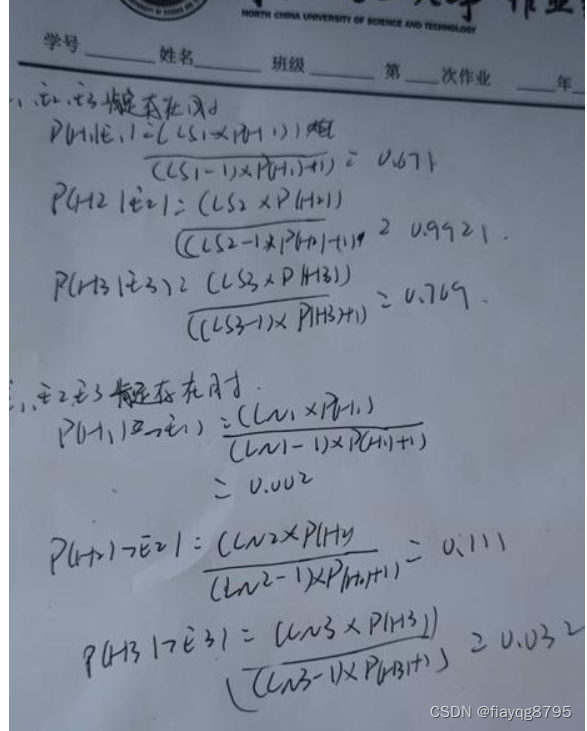 NORTH CHINA UNIVERSITY OF SCIENCE AND TECHNOLOGY
学号 姓名 班级 第 次作业 年
、E2、E3肯定存在时
P(H1|E1)=(LS1×P(H1))
((LS1-1)×P(H1)+1) = 0.671
P(H2|E2)= (LS2×P(H2))
((LS2-1)×P(H2)+1) = 0.9921.
P(H3|E3)= (LS3×P(H3))
((LS3-1)×P(H3)+1) = 0.769.
、E2、E3肯定存在时.
P(H1|¬E1) =(LN1×P(H1)
(LN1-1)×P(H1)+1)
= 0.002
P(H2|¬E2)= (LN2×P(H2)
(LN2-1)×P(H2)+1) = 0.111
P(H3|¬E3)= (LN3×P(H3))
((LN3-1)×P(H3)+1) = 0.032
CSDN @fiayqg8795